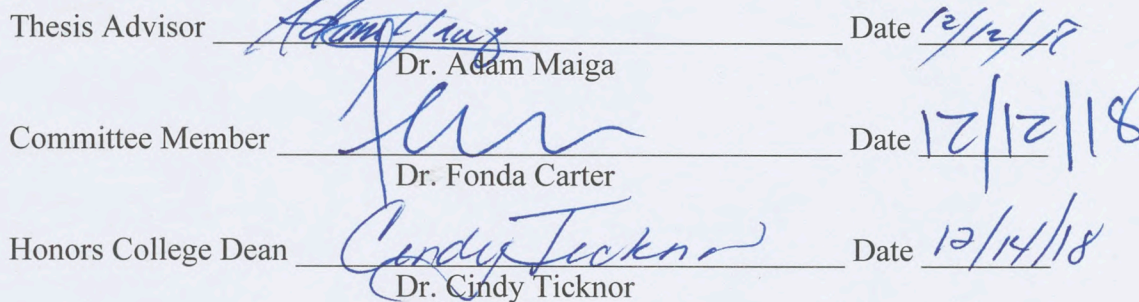 Thesis Advisor Date 12/12/18
Dr. Adam Maiga
Committee Member Date 12/12/18
Dr. Fonda Carter
Honors College Dean Cindy Ticknor Date 12/14/18
Dr. Cindy Ticknor